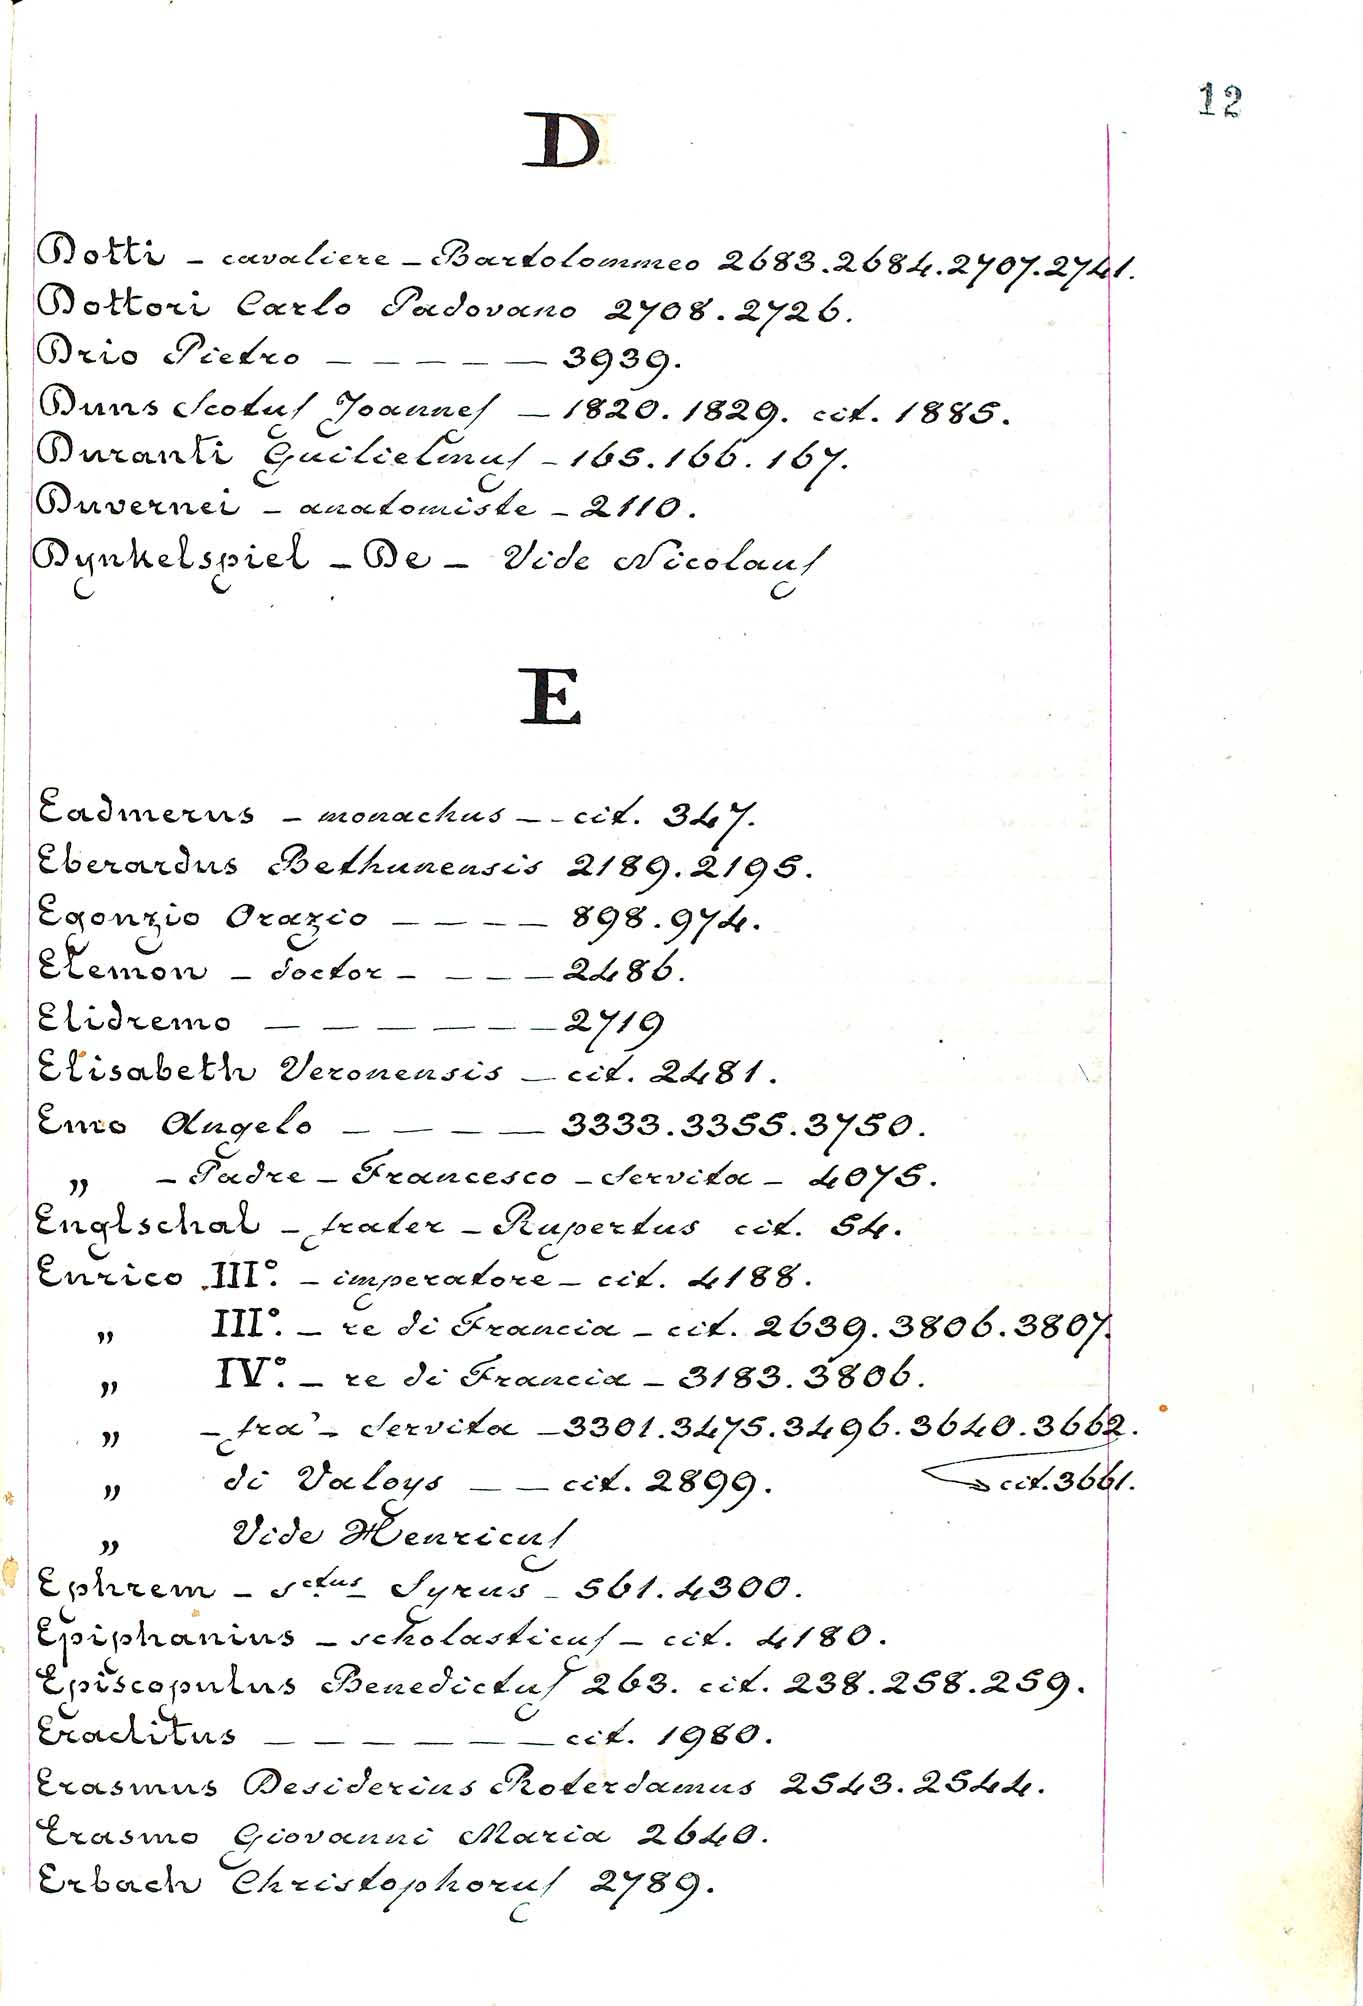 12
D
Dotti – cavaliere – Bartolommeo 2683.2684.2707.2741.
Dottori Carlo Padovano 2708.2726.
Drio Pietro — — — — — 3939.
Duns Scotus Joannes — 1820.1829. cit. 1885.
Duranti Guilielmus – 165.166.167.
Duvernei – anatomiste – 2110.
Dynkelspiel – De – Vide Nicolaus
E
Eadmerus – monachus – – cit. 347.
Eberardus Bethunensis 2189.2195.
Egonzio Orazio — — — — 898.974.
Elemon – doctor – — — — 2486.
Elidremo — — — — — — 2719
Elisabeth Veronensis — cit. 2481.
Emo Angelo — — — — 3333.3355.3750.
„ – Padre – Francesco – Servita – 4075.
Englschal – frater – Rupertus cit. 54.
Enrico III°. – imperatore – cit. 4188.
„ III°. – re di Francia – cit. 2639.3806.3807.
„ IV°. – re di Francia – 3183.3806.
„ – fra' – Servita – 3301.3475.3496.3640.3662.
„ di Valoys — — cit. 2899. cit. 3661.
„ Vide Henricus
Ephrem – Sctus – Syrus – 561.4300.
Epiphanius – scholasticus – cit. 4180.
Episcopulus Benedictus 263. cit. 238.258.259.
Eraclitus — — — — — — cit. 1980.
Erasmus Desiderius Roterdamus 2543.2544.
Erasmo Giovanni Maria 2640.
Erbach Christophorus 2789.